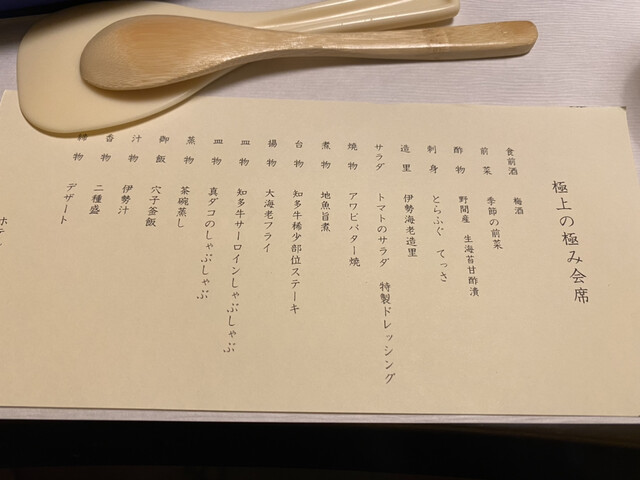 極上の極み会席
食前酒 梅酒
前菜 季節の前菜
酢物 野間産 生海苔甘酢漬
刺身 とらふぐ てっさ
造里 伊勢海老造里
サラダ トマトのサラダ 特製ドレッシング
焼物 アワビバター焼
煮物 地魚旨煮
台物 知多牛稀少部位ステーキ
揚物 大海老フライ
皿物 知多牛サーロインしゃぶしゃぶ
皿物 真ダコのしゃぶしゃぶ
蒸物 茶碗蒸し
御飯 穴子釜飯
汁物 伊勢汁
香物 二種盛
物 デザート
ホテ